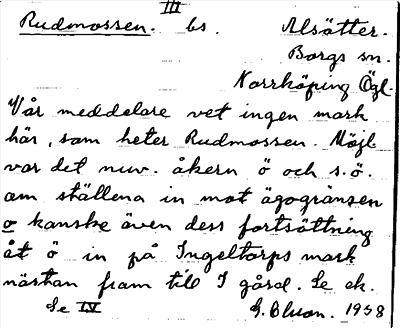 III
Rudmossen. bs. Alsätter.
Borgs sn.
Norrköping Ögl.
Vår meddelare vet ingen mark
här, som heter Rudmossen. Möjl.
var det nuv. åkern ö och s.ö.
om ställena in mot ägogränsen
o kanske även dess fortsättning
åt ö in på Ingeltorps mark
nästan fram till I gård. Se ek.
Se IV 1958